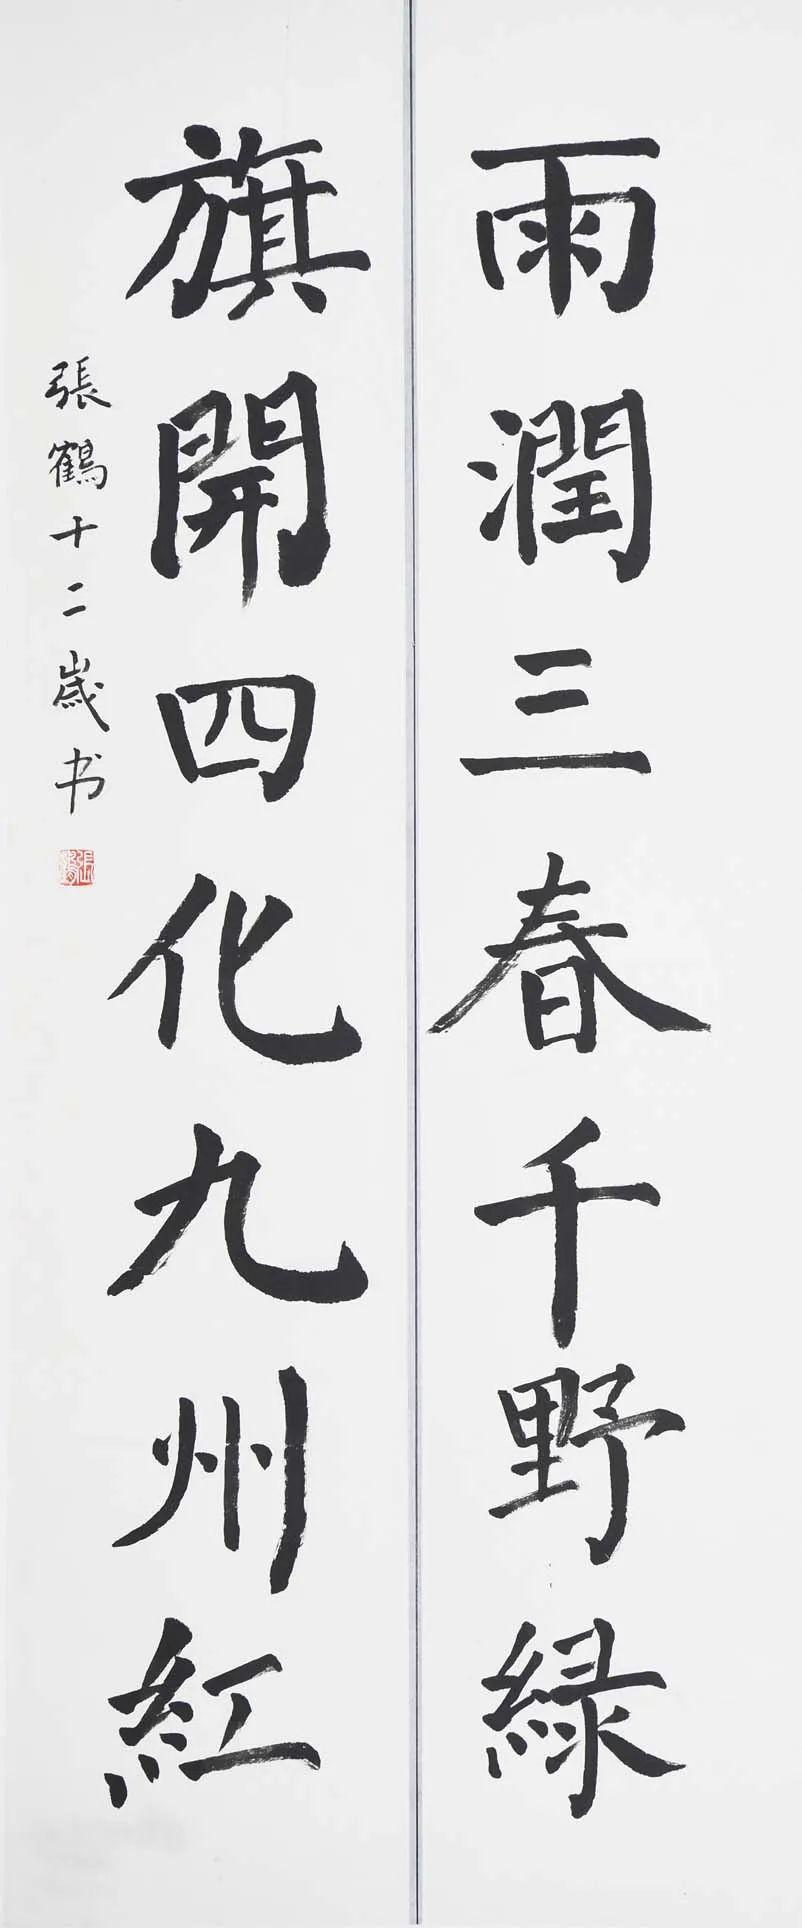 雨潤三春千野緑
旗開四化九州紅
張鶴十二歲书
張鶴